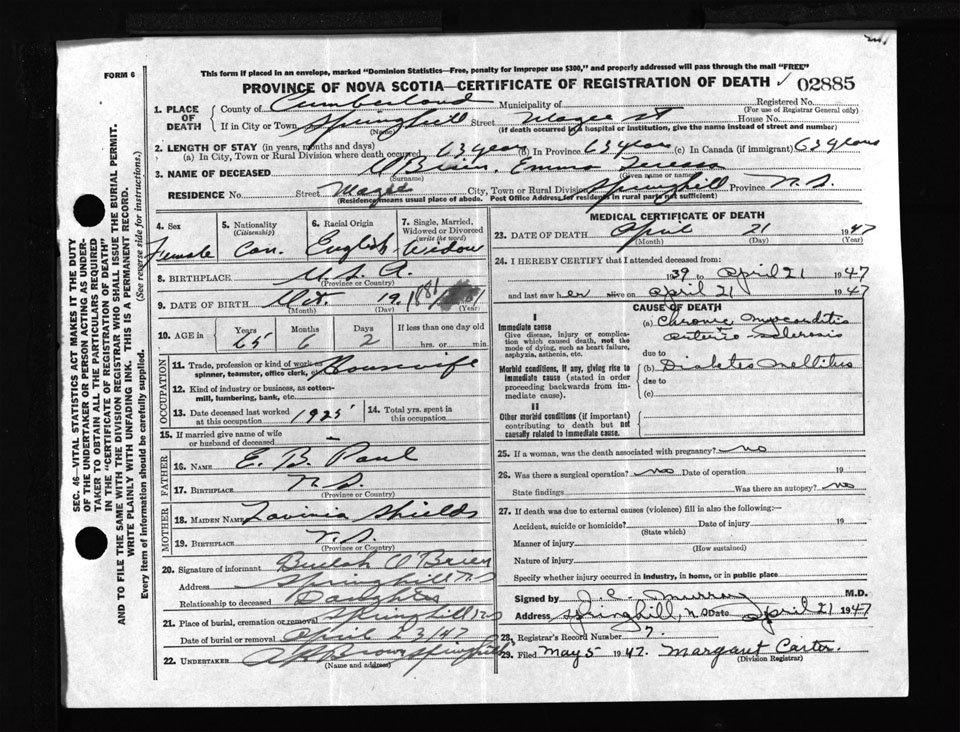 FORM 6
This form if placed in an envelope, marked "Dominion Statistics—Free, penalty for improper use $300," and properly addressed will pass through the mail "FREE"
PROVINCE OF NOVA SCOTIA—CERTIFICATE OF REGISTRATION OF DEATH 02885
SEC. 46—VITAL STATISTICS ACT MAKES IT THE DUTY
OF THE UNDERTAKER OR PERSON ACTING AS UNDER-
TAKER TO OBTAIN ALL THE PARTICULARS REQUIRED
IN THE "CERTIFICATE OF REGISTRATION OF DEATH"
AND TO FILE THE SAME WITH THE DIVISION REGISTRAR WHO SHALL ISSUE THE BURIAL PERMIT.
WRITE PLAINLY WITH UNFADING INK. THIS IS A PERMANENT RECORD.
Every item of information should be carefully supplied. (See reverse side for instructions.)
1. PLACE OF DEATH
County of Cumberland Municipality of Registered No.
(For use of Registrar General only)
If in City or Town Springhill Street Magee St House No.
(Name) (If death occurred in a hospital or institution, give the name instead of street and number)
2. LENGTH OF STAY (in years, months and days)
(a) In City, Town or Rural Division where death occurred 63 years (b) In Province 63 years (c) In Canada (if immigrant) 63 years
3. NAME OF DECEASED O'Brien, Emma Teressa
(Surname) (Given name or names)
RESIDENCE No. Street Magee City, Town or Rural Division Springhill Province N.S.
(Residence means usual place of abode. Post Office Address for residents in rural parts not sufficient)
4. Sex
Female
5. Nationality
(Citizenship)
Can.
6. Racial Origin
English
7. Single, Married, Widowed or Divorced
(write the word)
Widow
8. BIRTHPLACE U.S.A.
(Province or Country)
9. DATE OF BIRTH Oct. 19. 1881
(Month) (Day) (Year)
10. AGE in Years Months Days If less than one day old
65 6 2 hrs. or min.
OCCUPATION
11. Trade, profession or kind of work as Housewife
spinner, teamster, office clerk, etc.
12. Kind of industry or business, as cotton-
mill, lumbering, bank, etc.
13. Date deceased last worked at this occupation 1925
14. Total yrs. spent in this occupation
15. If married give name of wife or husband of deceased –
FATHER
16. NAME E. B. Paul
17. BIRTHPLACE N.S.
(Province or Country)
MOTHER
18. MAIDEN NAME Lavinia Shields
19. BIRTHPLACE N.S.
(Province or Country)
20. Signature of informant Beulah O'Brien
Address Springhill N.S
Relationship to deceased Daughter
21. Place of burial, cremation or removal Springhill N.S
Date of burial or removal April 23/47
22. UNDERTAKER Brown Springhill
(Name and address)
MEDICAL CERTIFICATE OF DEATH
23. DATE OF DEATH April 21 1947
(Month) (Day) (Year)
24. I HEREBY CERTIFY that I attended deceased from:
1939 to April 21 1947
and last saw her alive on April 21 1947
CAUSE OF DEATH
I
Immediate cause
Give disease, injury or complication which caused death, not the mode of dying, such as heart failure, asphyxia, asthenia, etc.
(a) Chronic Myocarditis
Arterio Sclerosis
due to
Morbid conditions, if any, giving rise to immediate cause (stated in order proceeding backwards from immediate cause).
(b) Diabetes Mellitus
due to
(c)
II
Other morbid conditions (if important) contributing to death but not causally related to immediate cause.
25. If a woman, was the death associated with pregnancy? no
26. Was there a surgical operation? no Date of operation 19
State findings Was there an autopsy? no
27. If death was due to external causes (violence) fill in also the following:—
Accident, suicide or homicide? Date of injury 19
(State which)
Manner of injury
(How sustained)
Nature of injury
Specify whether injury occurred in industry, in home, or in public place
Signed by J. C. Murray M.D.
Address Springhill, N.S Date April 21 1947
28. Registrar's Record Number 7.
29. Filed May 5 1947. Margaret Carter.
(Division Registrar)